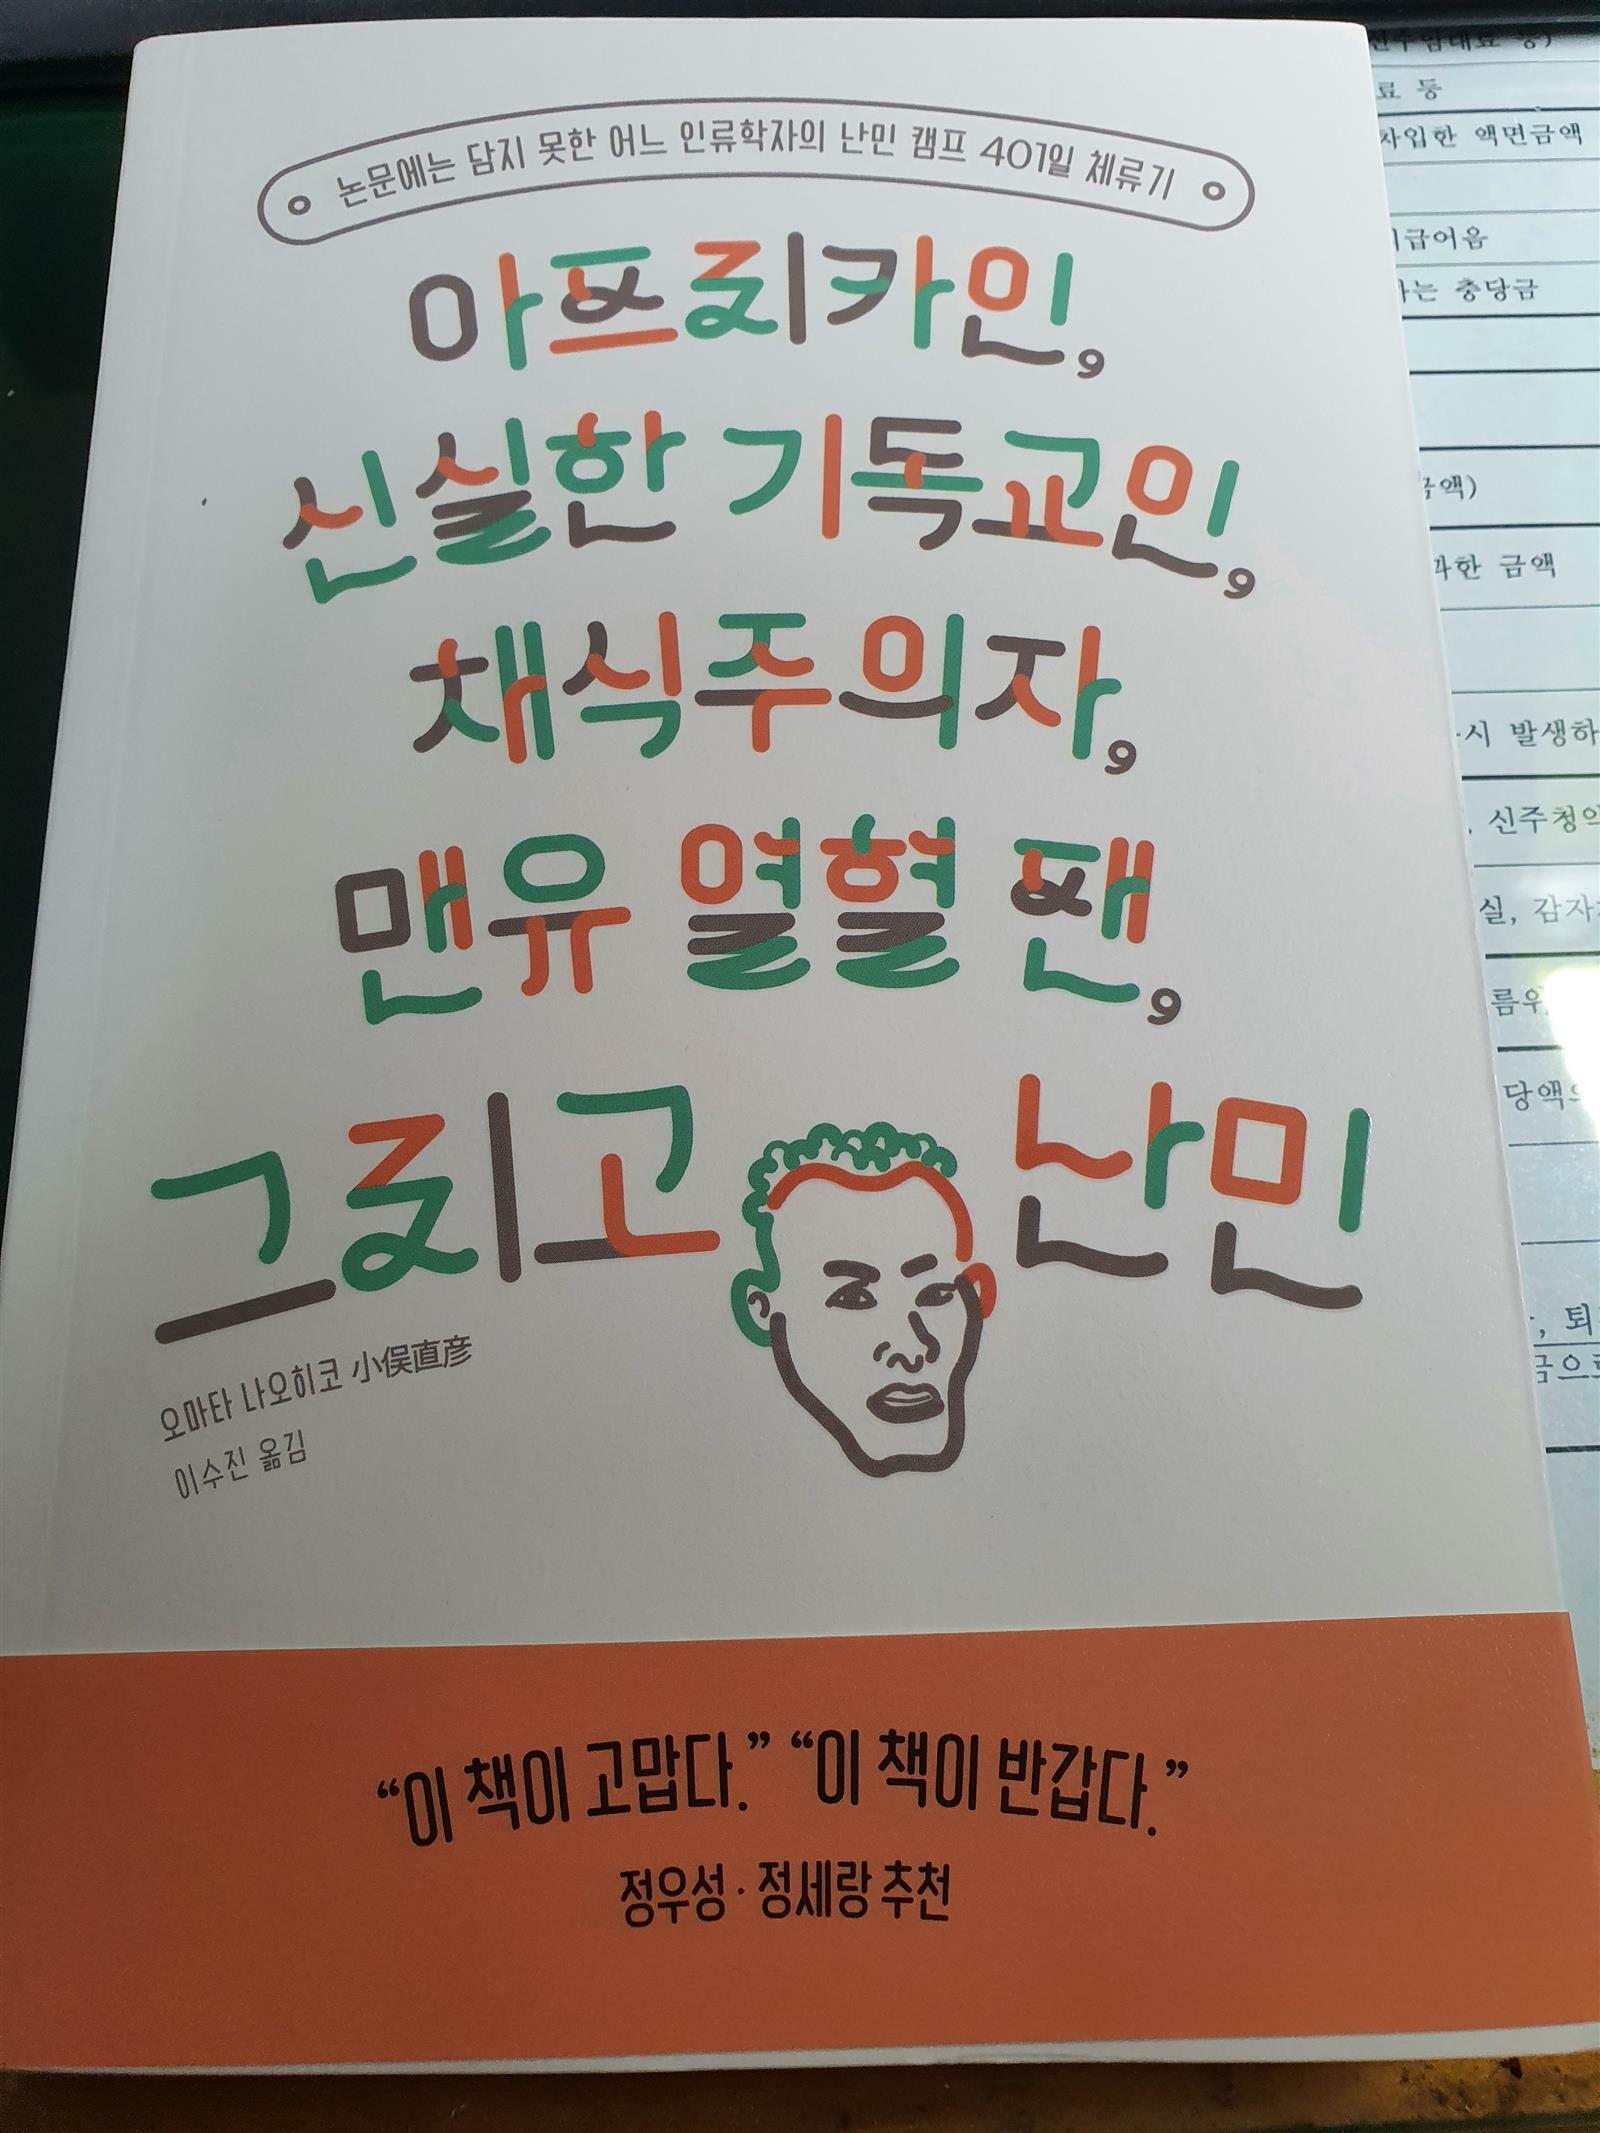 논문에는 담지 못한 어느 인류학자의 난민 캠프 401일 체류기
아프리카인,
신실한 기독교인,
채식주의자,
맨유 열혈 팬,
그리고 난민
오마타 나오히코 小俣直彦
이수진 옮김
“이 책이 고맙다.” “이 책이 반갑다.”
정우성·정세랑 추천
료 등
차입한 액면금액
지급어음
하는 충당금
금액)
과한 금액
시 발생하
, 신주청약
실, 감자차
름우
당액의
, 퇴직
금으로